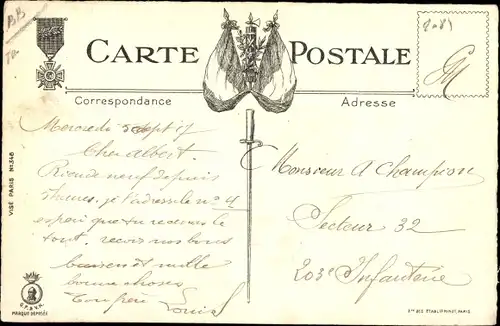 BB
CARTE POSTALE
Correspondance
Adresse
FM
Mercredi 5 sept 17
Cher Albert.
Rien de neuf depuis
je t'adresse le nº 4
espoir que tu recevras le
tout. reçois nos bons
baisers et mille
bonnes choses
Ton père Louis
Monsieur A Champion
Secteur 32
203e Infanterie
VISÉ PARIS Nº 346
MARQUE DÉPOSÉE